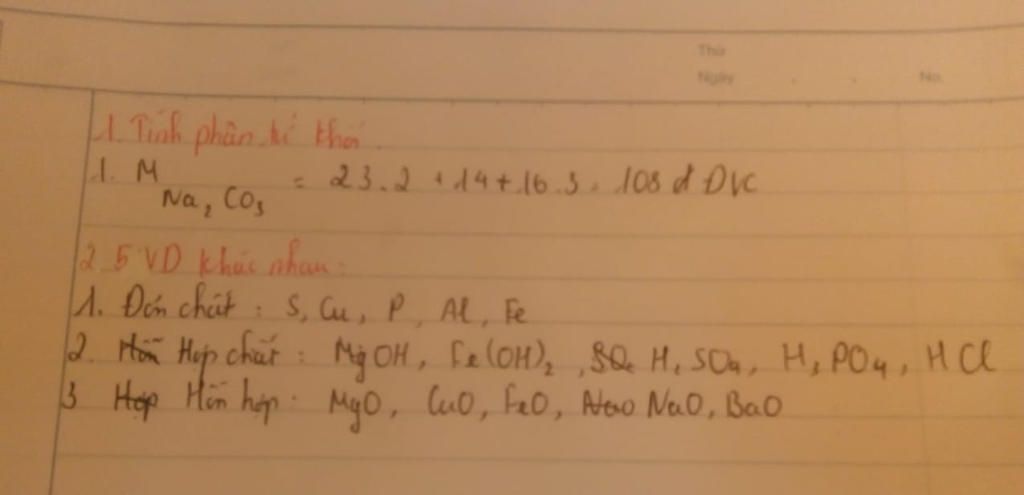 Thứ
Ngày . . No.
1. Tính phân tử khối.
1. M Na₂CO₃ = 23.2 + 14 + 16.3 = 108 đ ĐVC
2. 5 VD khác nhau:
1. Đơn chất : S, Cu, P, Al, Fe
2. Hỗn Hợp chất : MgOH, Fe(OH)₂, SO₂ H₂SO₄, H₃PO₄, HCl
3 Hợp Hỗn hợp : MgO, CuO, FeO, NaO NaO, BaO